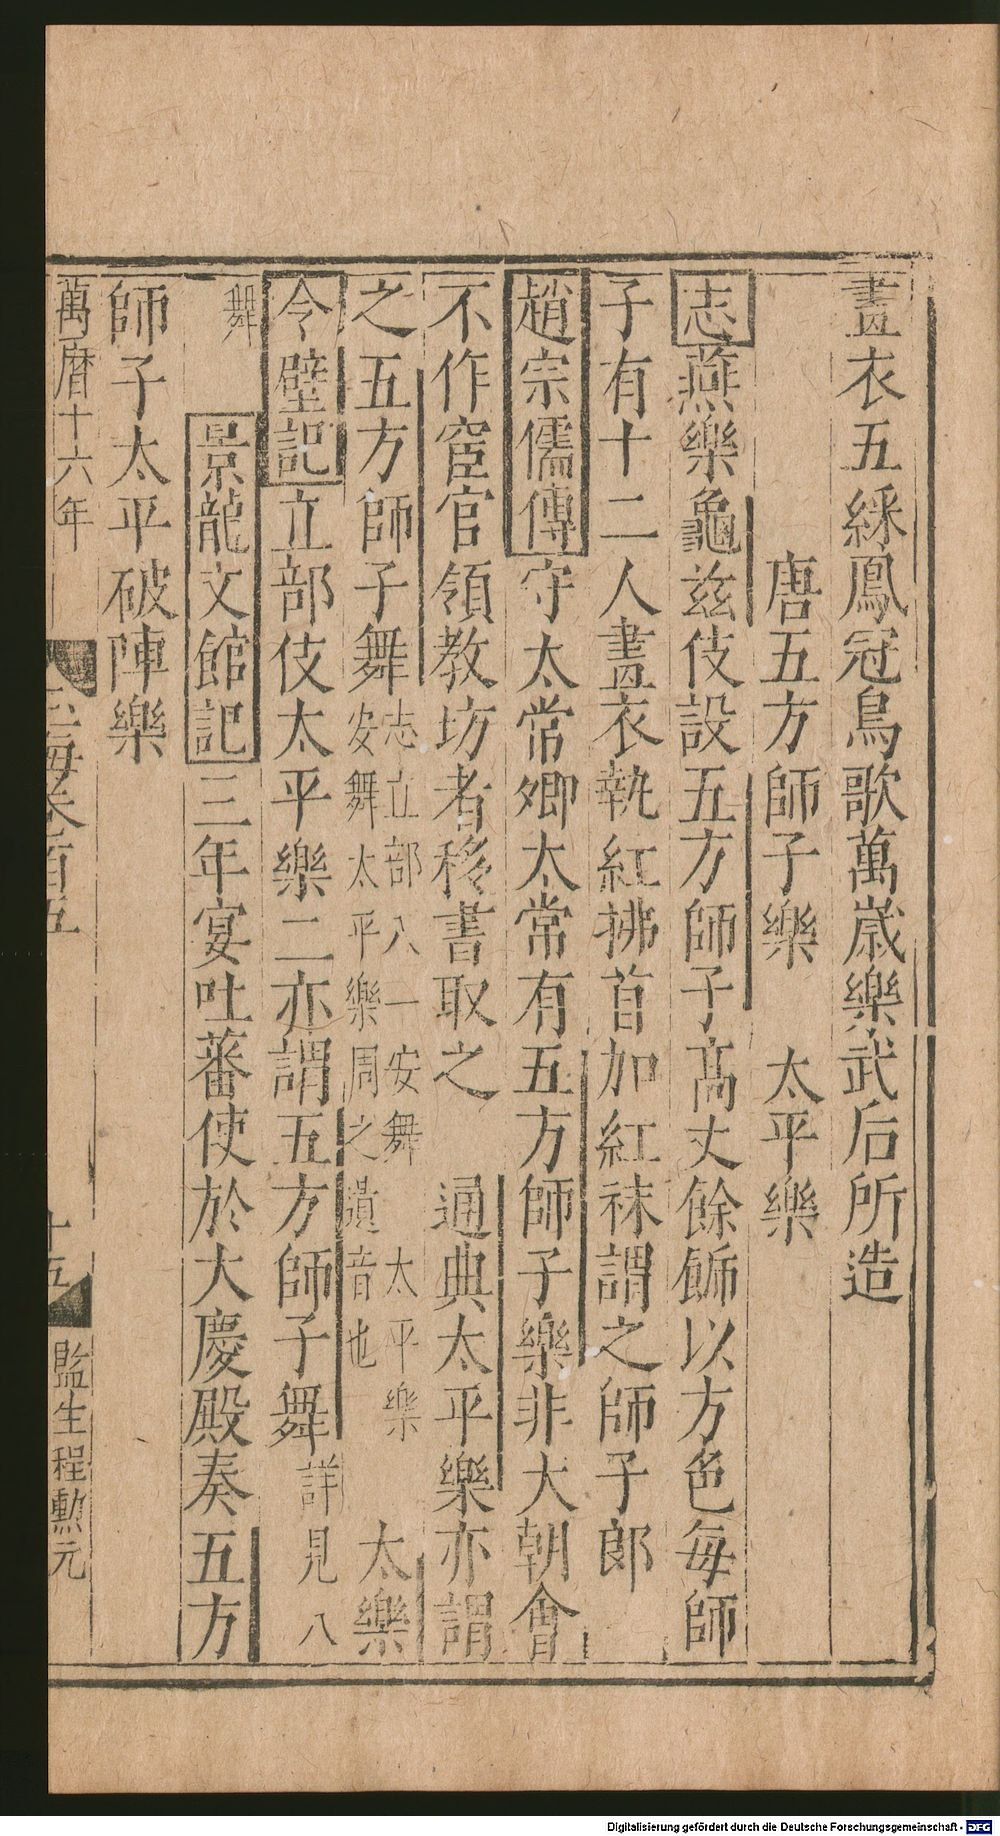 畫衣五綵鳳冠鳥歌萬歲樂武后所造
唐五方師子樂　太平樂
志燕樂龜兹伎設五方師子高丈餘飾以方色每師
子有十二人畫衣執紅拂首加紅袜謂之師子郎
趙宗儒傳守太常卿太常有五方師子樂非大朝會
不作宦官領教坊者移書取之　通典太平樂亦謂
之五方師子舞志立部八一安舞　太平樂安舞太平樂周之遺音也　太樂
令壁記立部伎太平樂二亦謂五方師子舞詳見八
舞　景龍文館記三年宴吐蕃使於大慶殿奏五方
師子太平破陣樂
萬曆十六年　玉海卷百五　十五　監生程勲元
Digitalisierung gefördert durch die Deutsche Forschungsgemeinschaft - DFG